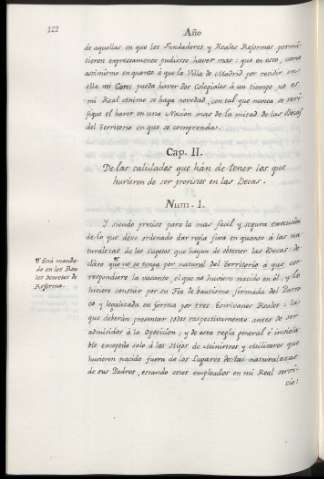 322
Año
de aquellas en que los Fundadores, y Reales Reformas permi-
tieren expresamente pudiese haver mas: que en esto, como
asimismo en quanto à que la Villa de Madrid por residir en
ella mi Corte pueda haver dos Colegiales à un tiempo, no es
mi Real animo se haga novedad, con tal que nunca se veri-
fique el haver en una Nacion mas de la mitad de las Becas
del Territorio en que se comprenda.
Cap. II.
De las calidades que hán de tener los que
huvieren de ser proviстos en las Becas.
Num. 1.
Y siendo preciso para la mas facil, y segura execucion
de lo que dexo ordenado dar regla fixa en quanto à las na-
turalezas de los sugetos que hayan de obtener las Becas: de-
claro que no se tenga por natural del Territorio à que cor-
respondiere la vacante, el que no huviere nacido en él, y lo
hiciere constar por su Fee de bautismo firmada del Parro-
co y legalizada en forma por tres Escrivanos Reales: la
que deberán presentar todos respectivamente antes de ser
admitidos à la oposicion; y de esta regla general è inviola-
ble exceptúo solo à los Hijos de Ministros y Militares que
huvieren nacido fuera de los Lugares de las naturalezas
de sus Padres, estando estos empleados en mi Real Servi-
cio:
Está manda-
do en los Rea-
les Decretos de
Reforma.